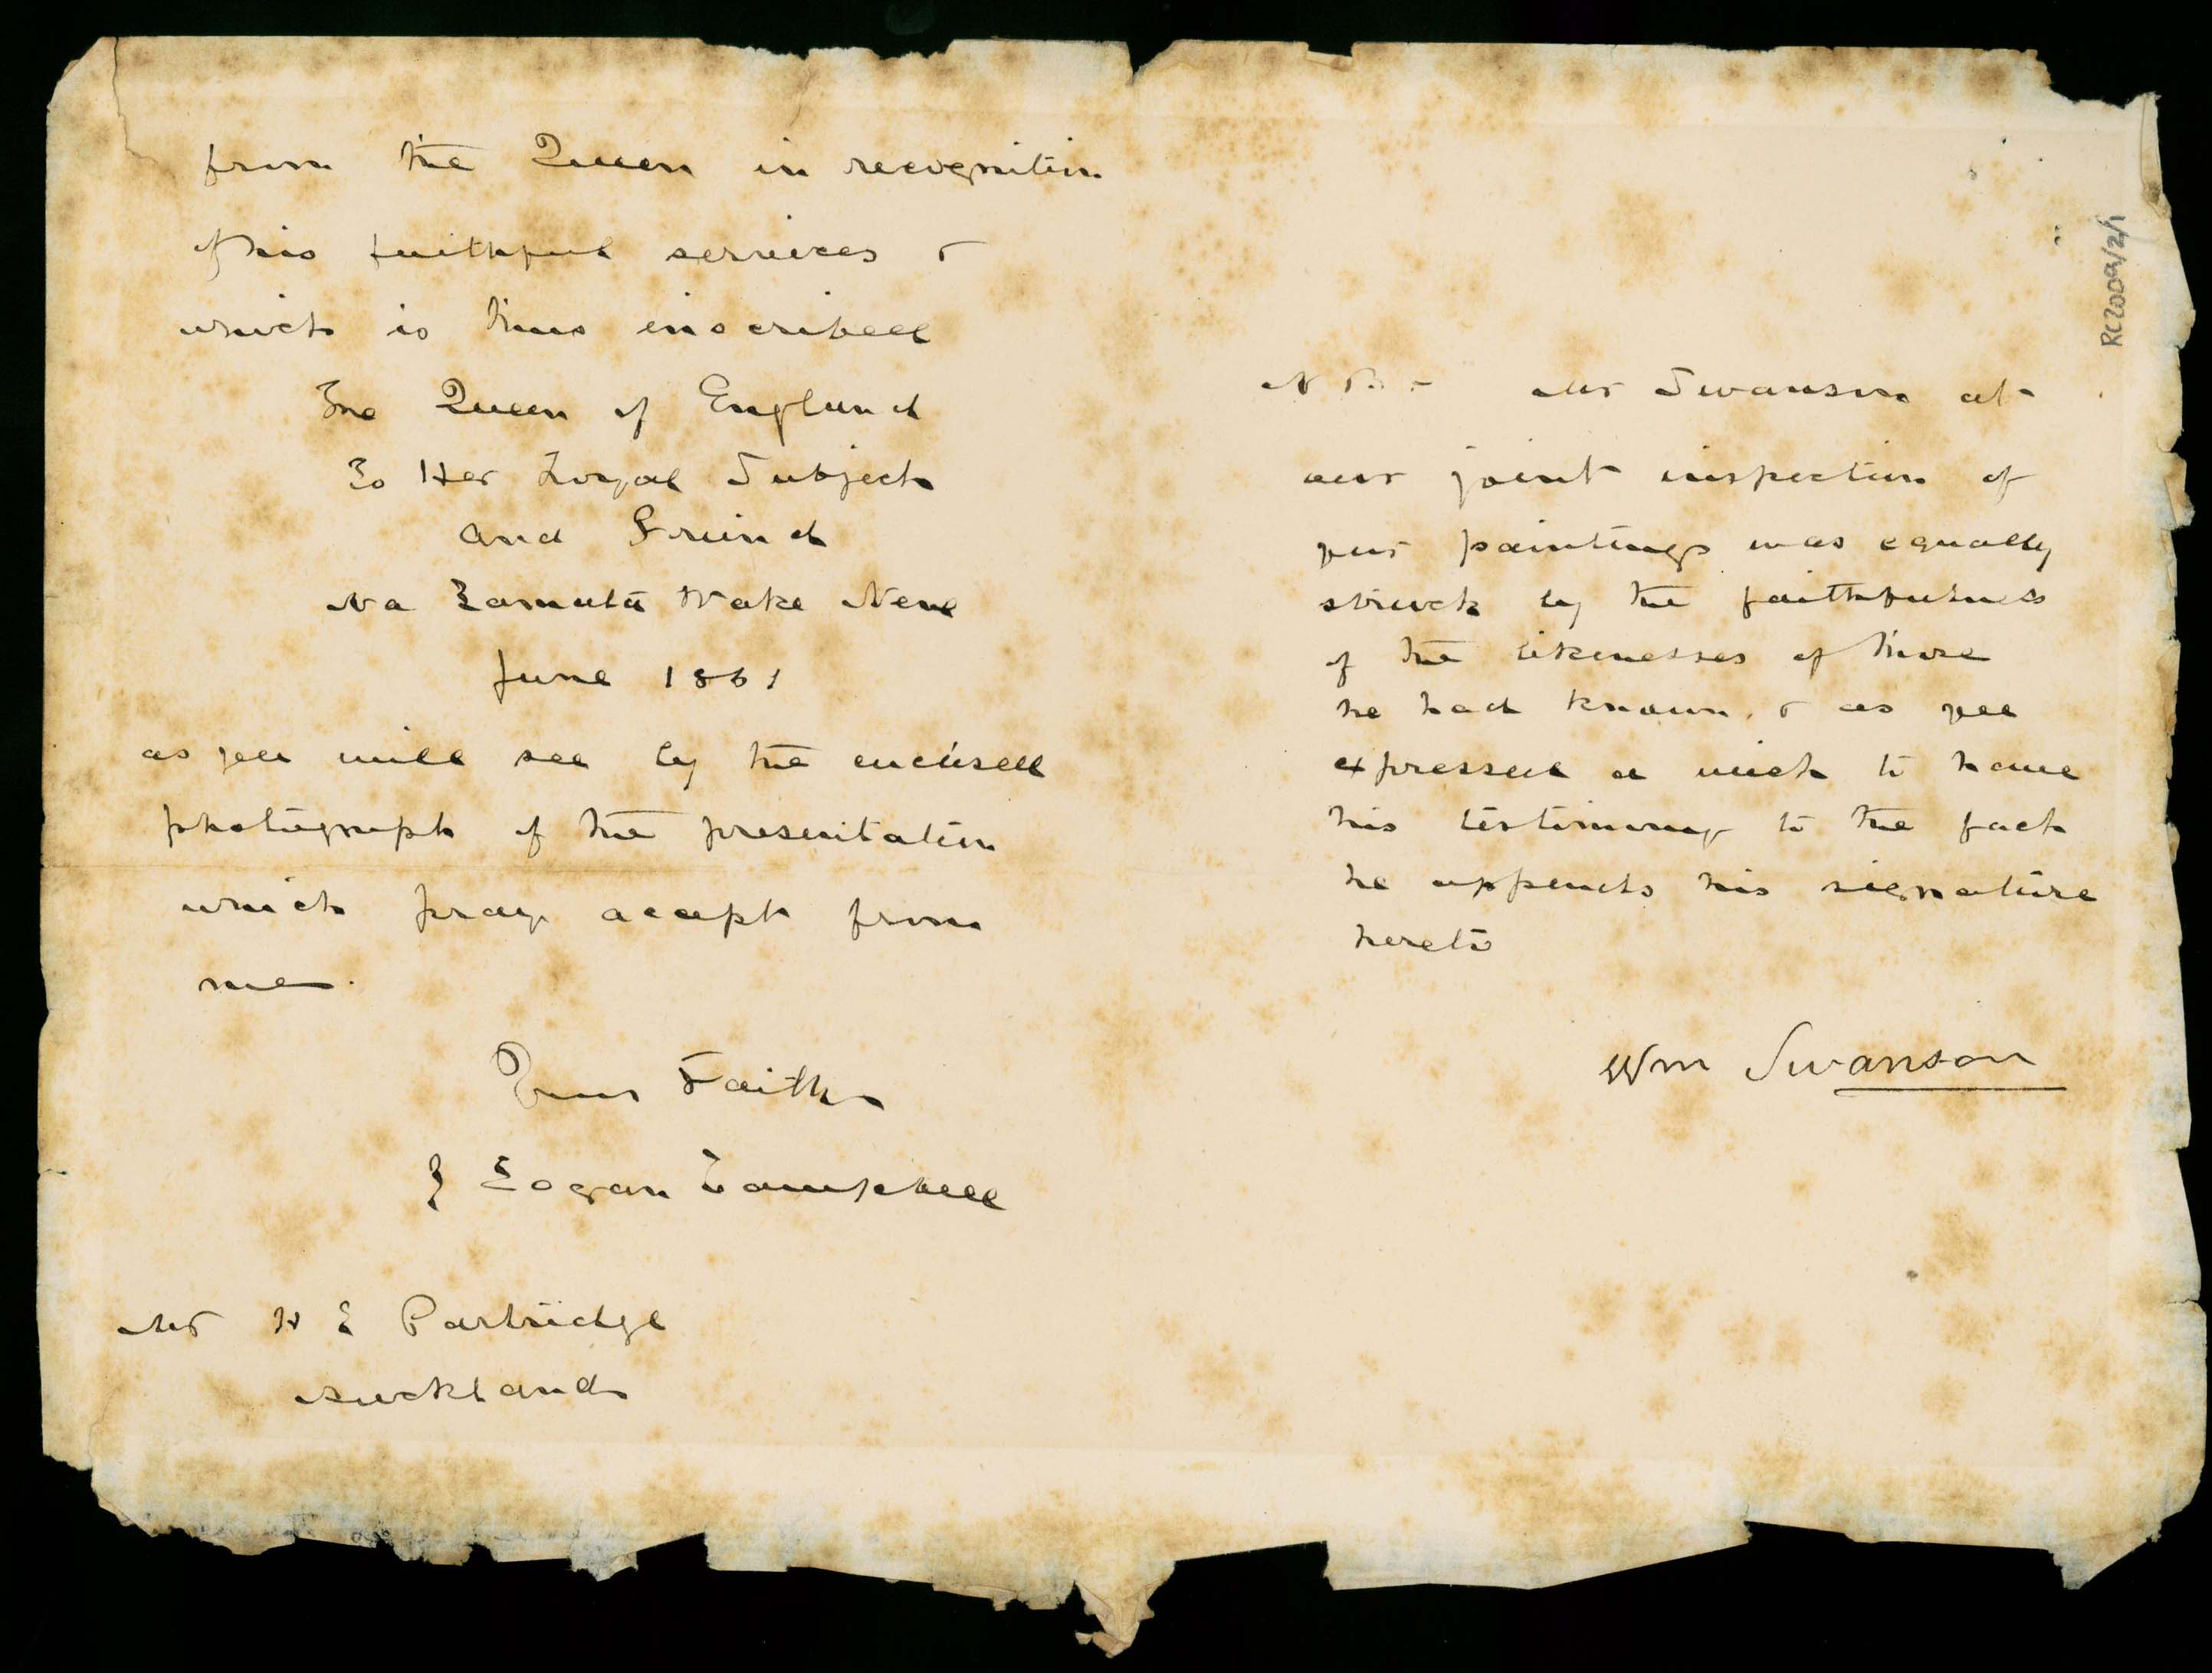 from the Queen in recognition
of his faithful services &
which is thus inscribed
The Queen of England
To Her Loyal Subject
and Freind
Na Tamata Wake Nene
June 1861
as you will see by the enclosed
photograph of the presentation
which pray accept from
me.
Yours Faithy
J Logan Campbell
Mr H E Partridge
Auckland
N B - Mr Swanson at
our joint inspection of
your paintings was equally
struck by the faithfulness
of the likenesses of those
he had known, & as you
expressed a wish to have
his testimony to the fact
he appends his signature
hereto
Wm Swanson
RC2009/2/1